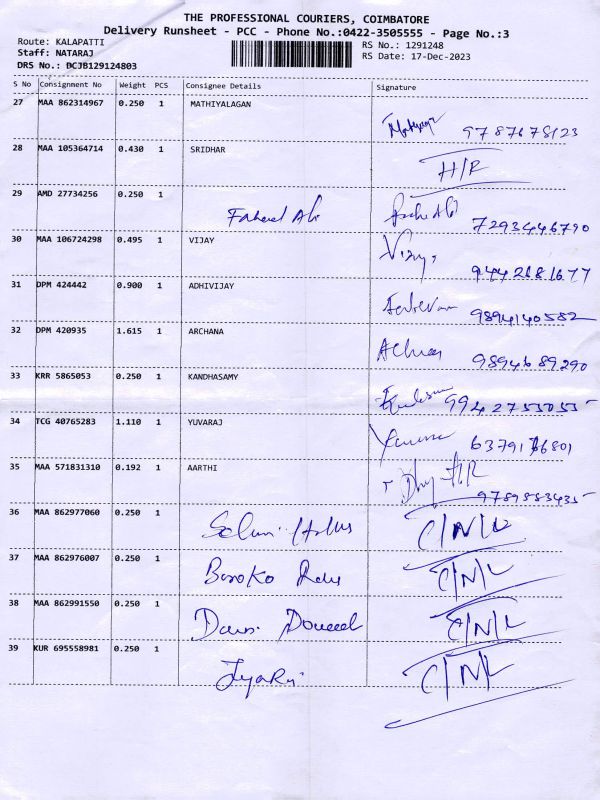 THE PROFESSIONAL COURIERS, COIMBATORE
Delivery Runsheet - PCC - Phone No.:0422-3505555 - Page No.:3
Route: KALAPATTI
Staff: NATARAJ
DRS No.: DCJB129124803
RS No.: 1291248
RS Date: 17-Dec-2023
S No Consignment No Weight PCS Consignee Details Signature
27 MAA 862314967 0.250 1 MATHIYALAGAN
9787678123
28 MAA 105364714 0.430 1 SRIDHAR
H/R
29 AMD 27734256 0.250 1
7293446790
30 MAA 106724298 0.495 1 VIJAY
9442681677
31 DPM 424442 0.900 1 ADHIVIJAY
9894140582
32 DPM 420935 1.615 1 ARCHANA
9894689290
33 KRR 5865053 0.250 1 KANDHASAMY
34 TCG 40765283 1.110 1 YUVARAJ
35 MAA 571831310 0.192 1 AARTHI
9789583435
36 MAA 862977060 0.250 1
C/N/L
37 MAA 862976007 0.250 1
C/N/L
38 MAA 862991550 0.250 1
C/N/L
39 KUR 695558981 0.250 1
C/N/L